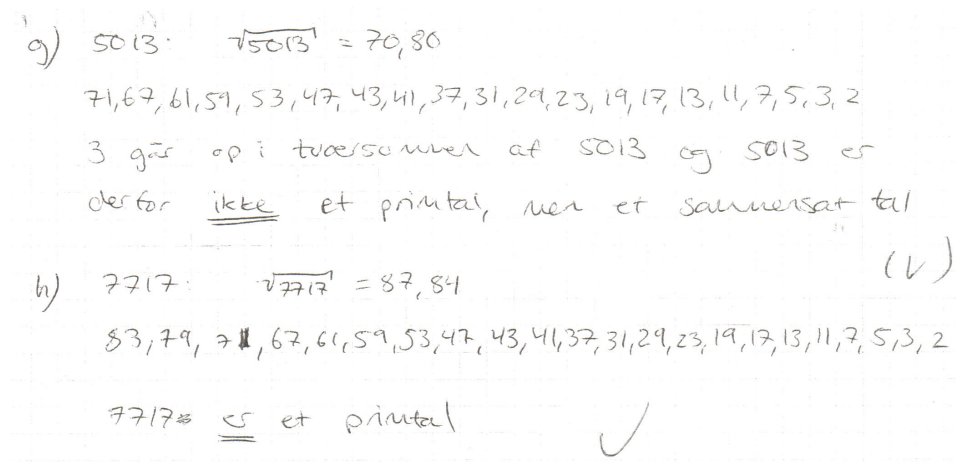 g) 5013: √5013 = 70,80
71,67,61,59,53,47,43,41,37,31,29,23,19,17,13,11,7,5,3,2
3 går op i tværsummen af 5013 og 5013 er
derfor ikke et primtal, men et sammensat tal
(√)
h) 7717: √7717 = 87,84
83,79,71,67,61,59,53,47,43,41,37,31,29,23,19,17,13,11,7,5,3,2
7717 er et primtal √